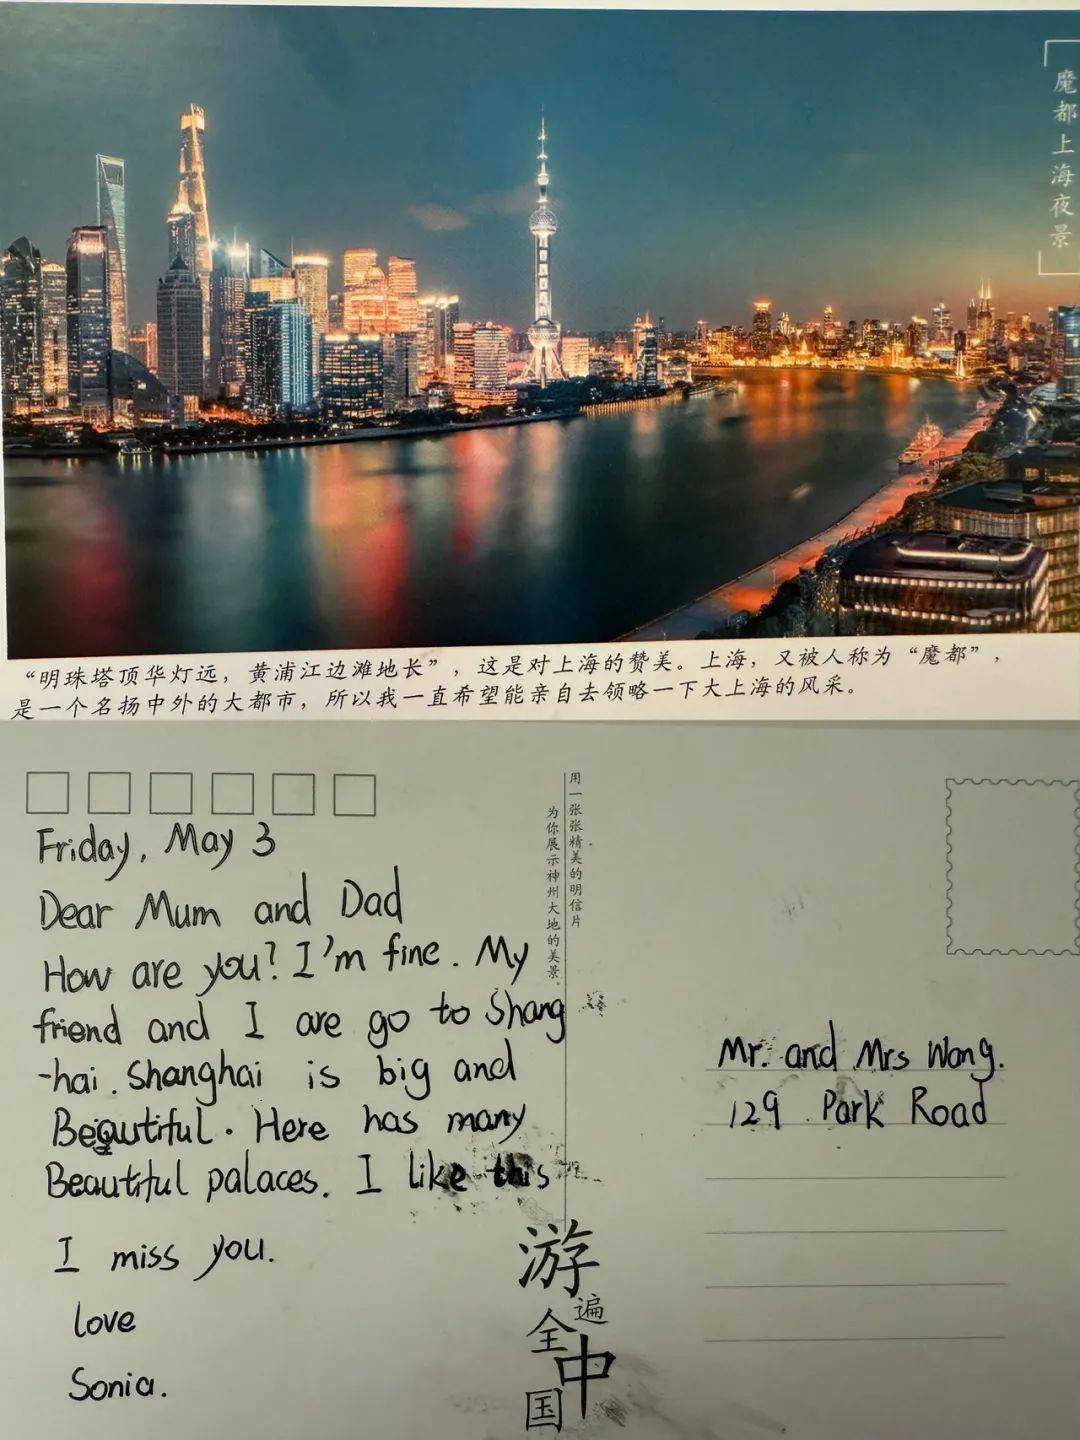 魔都上海夜景
“明珠塔顶华灯远，黄浦江边滩地长”，这是对上海的赞美。上海，又被人称为“魔都”，
是一个名扬中外的大都市，所以我一直希望能亲自去领略一下大上海的风采。
用一张张精美的明信片
为你展示神州大地的美景
Friday, May 3
Dear Mum and Dad
How are you? I'm fine. My
friend and I are go to Shang
-hai. Shanghai is big and
Beautiful. Here has many
Beautiful palaces. I like this
I miss you.
love
Sonia.
Mr. and Mrs Wang.
129 Park Road
游
遍
全
中
国